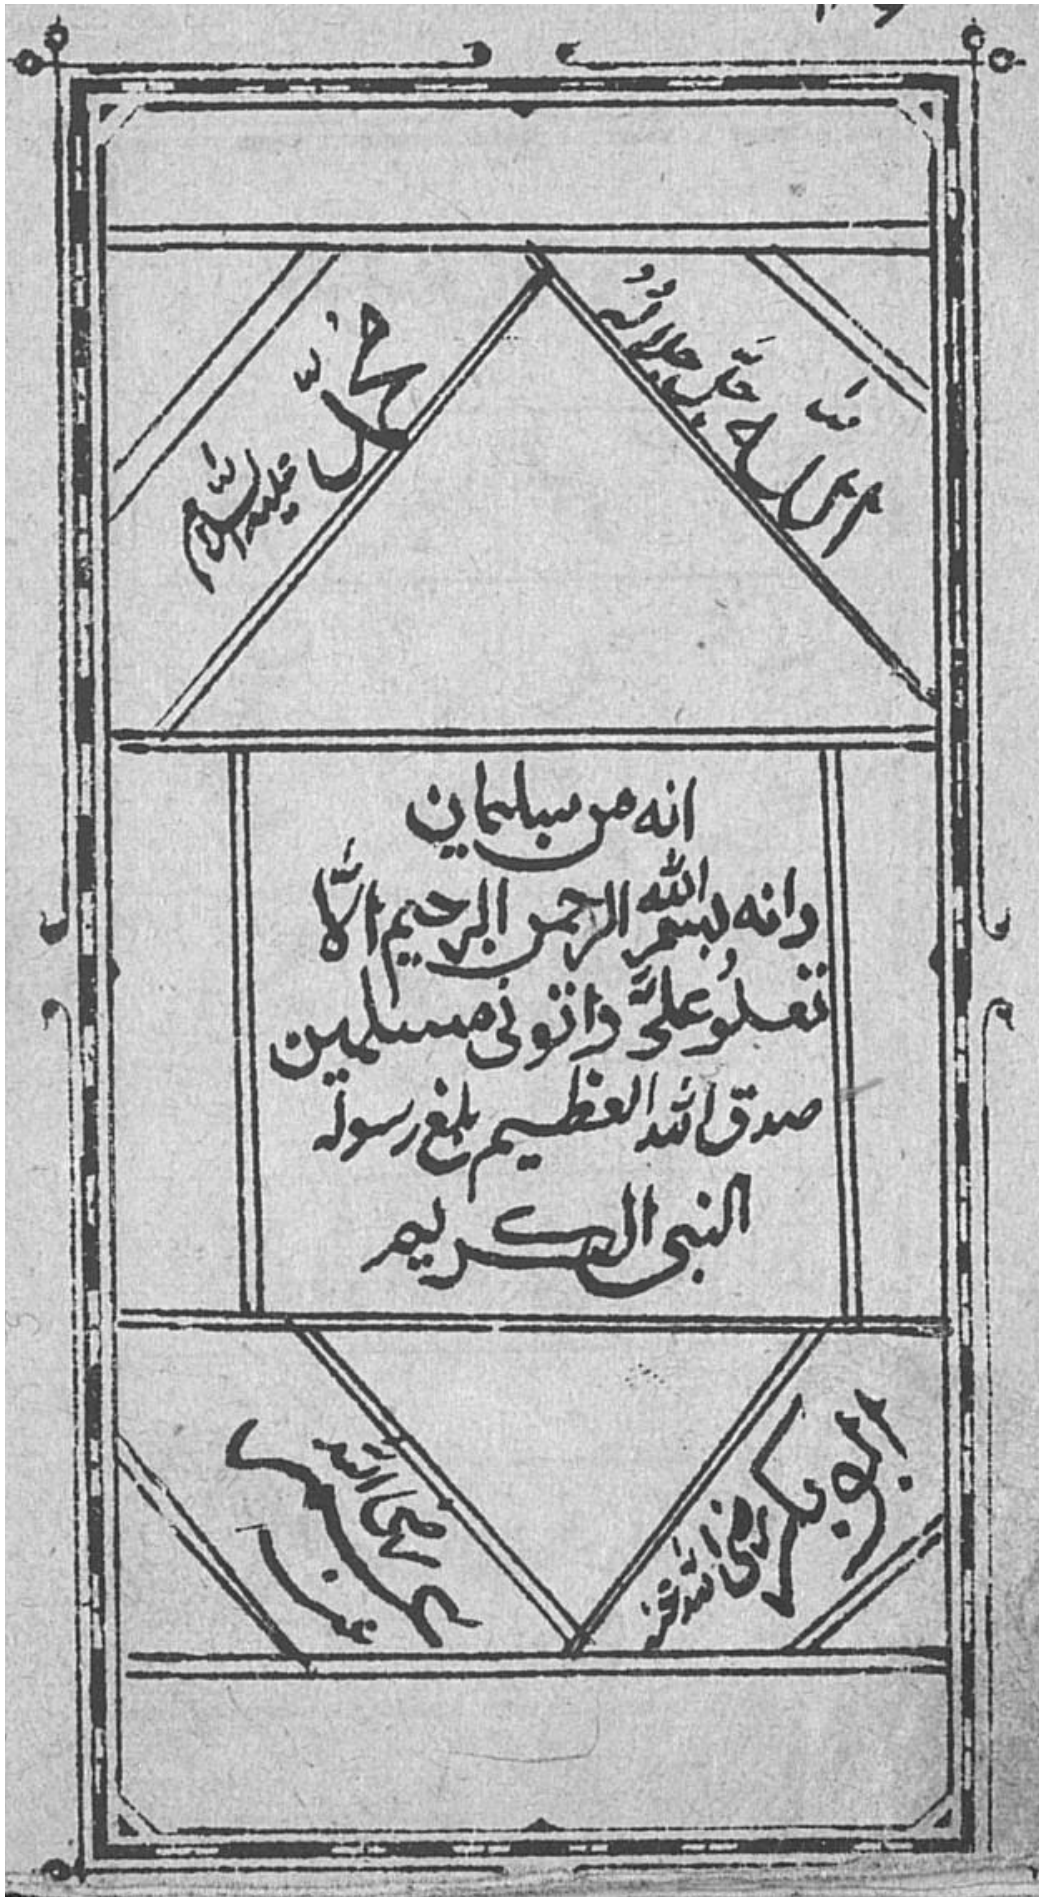 الله جل جلاله
محمد عليه السلام
انه من سليمان
وانه بسم الله الرحمن الرحيم الّا
تعلوُ عليَّ واتونى مسلمين
صدق الله العظيم بلغ رسوله
النبى الكريم
ابو بكر رضى الله عنه
عمر رضى الله